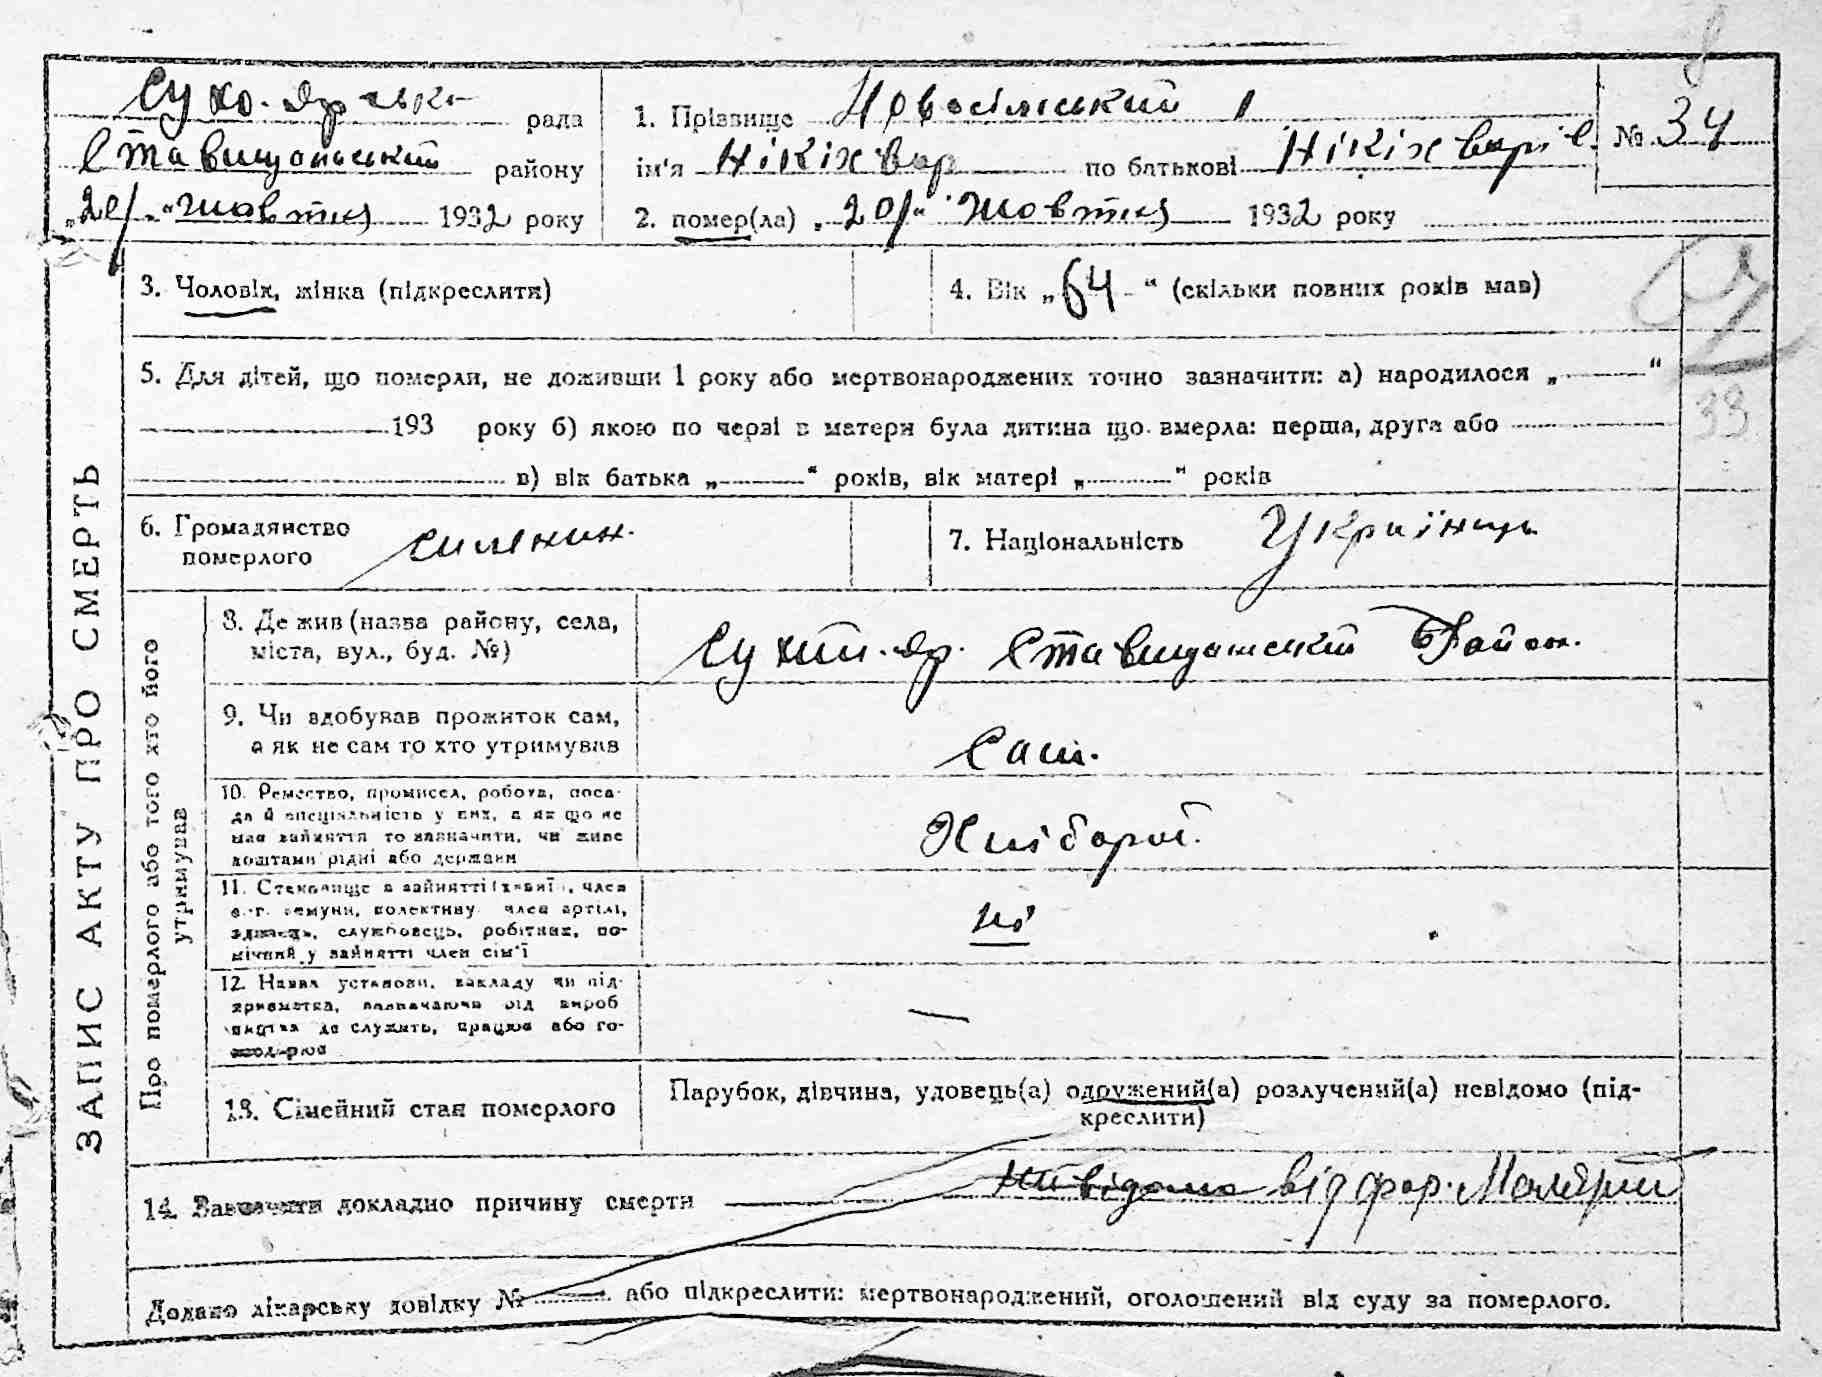 Сухо-Ярська рада
Ставищанський району
„20/“ жовтня 1932 року
1. Прізвище Новосілський
ім'я Нікіхвор по батькові Нікіхварів.
№ 34
2. помер(ла) „20/“ жовтня 1932 року
3. Чоловік, жінка (підкреслити)
4. Вік „64“ (скільки повних років мав)
5. Для дітей, що померли, не доживши 1 року або мертвонароджених точно зазначити: а) народилося „ “
193 року б) якою по черзі в матери була дитина що вмерла: перша, друга або
39
в) вік батька „ “ років, вік матері „ “ років
6. Громадянство
померлого
силянин.
7. Національність Українець
ЗАПИС АКТУ ПРО СМЕРТЬ
Про померлого або того хто його
утримував
8. Де жив (назва району, села,
міста, вул., буд. №)
Сухий-Яр. Ставищанський Район.
9. Чи здобував прожиток сам,
а як не сам то хто утримував
Сам.
10. Ремество, промисел, робота, поса-
да й спеціяльність у них, а як що не
мав зайняття то зазначити, чи живе
коштами рідні або держави
Хлібороб.
11. Становище в зайнятті (хазяїн, член
с.-г. комуни, колективу, член артілі,
одинець, службовець, робітник, по-
мічний у зайнятті член сім'ї
12. Назва установи, закладу чи під-
приємства, зазначаючи від вироб
ництва де служить, працює або го-
сподарює
—
13. Сімейний стан померлого
Парубок, дівчина, удовець(а) одружений(а) розлучений(а) невідомо (під-
креслити)
14. Зазначити докладно причину смерти невідомо від фор. Малярий
Додано лікарську довідку № або підкреслити: мертвонароджений, оголошений від суду за померлого.